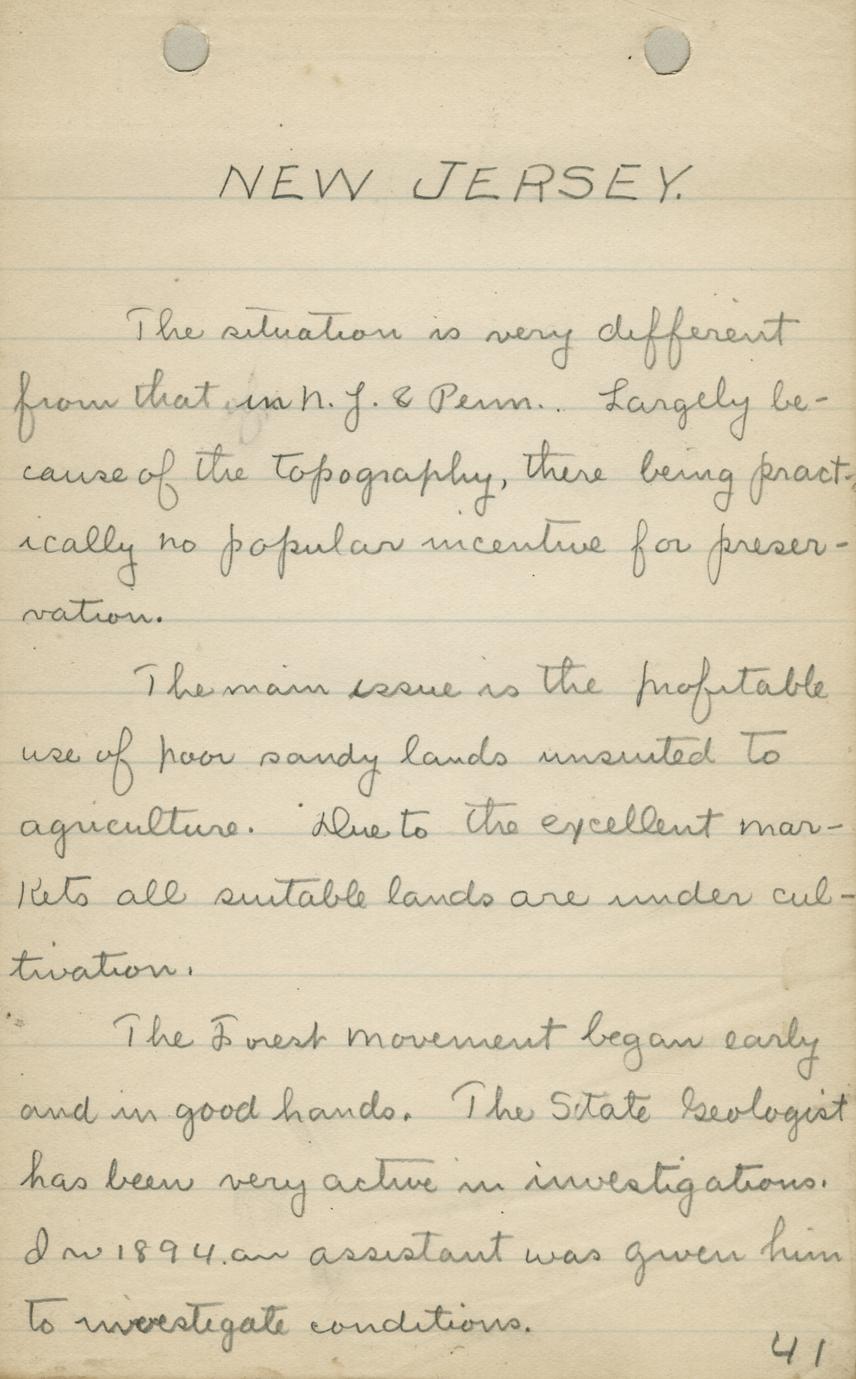 NEW JERSEY.
The situation is very different
from that in N. Y. & Penn.. Largely be-
cause of the topography, there being pract-
ically no popular incentive for preser-
vation.
The main issue is the profitable
use of poor sandy lands unsuited to
agriculture. Due to the excellent mar-
kets all suitable lands are under cul-
tivation.
The Forest movement began early
and in good hands. The State Geologist
has been very active in investigations.
In 1894 an assistant was given him
to investigate conditions.
41